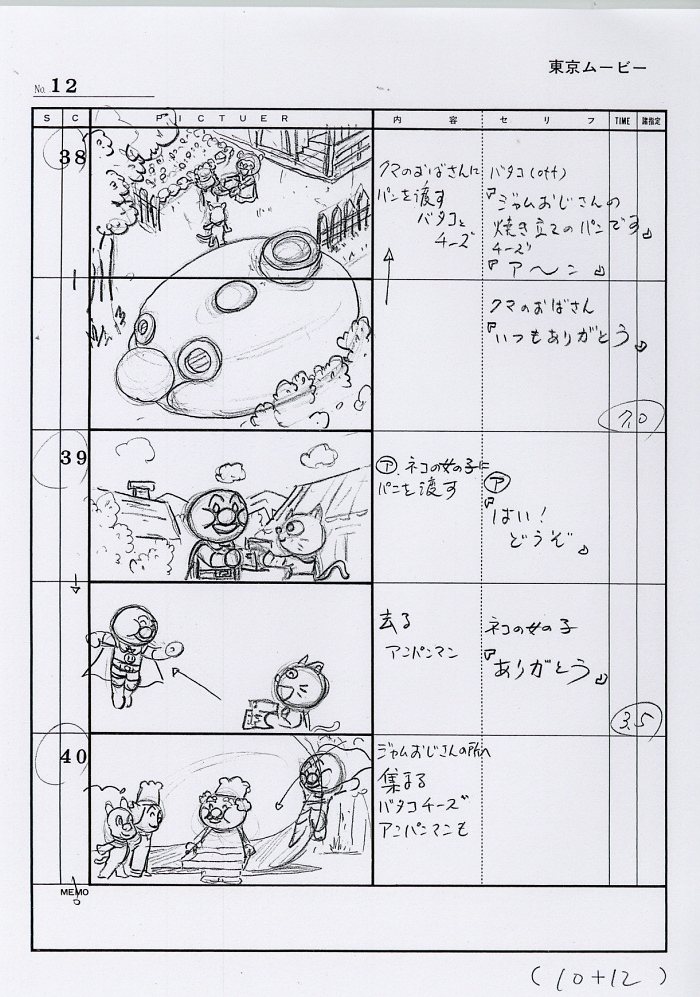 東京ムービー
No. 12
S C PICTUER 内容 セリフ TIME 諸指定
38
クマのおばさんに
パンを渡す
バタコと
チーズ
バタコ(off)
『ジャムおじさんの
焼き立てのパンです』
チーズ
『ア〜ン』
クマのおばさん
『いつもありがとう』
7.0
39
ア.ネコの女の子に
パンを渡す
ア
『はい!
どうぞ』
去る
アンパンマン
ネコの女の子
『ありがとう』
3.5
40
ジャムおじさんの所へ
集まる
バタコチーズ
アンパンマンも
MEMO
(10+12)